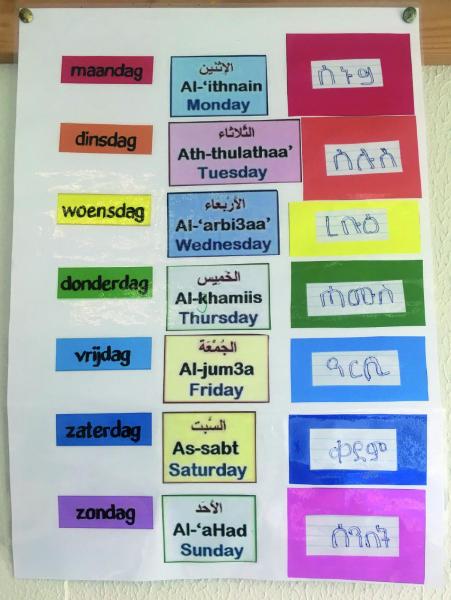 maandag
الإثْنين
Al-‘ithnain
Monday
ሰኑይ
dinsdag
الثُّلاثاء
Ath-thulathaa’
Tuesday
ሰሉስ
woensdag
الأرْبعاء
Al-‘arbi3aa’
Wednesday
ረቡዕ
donderdag
الخَميس
Al-khamiis
Thursday
ሓሙስ
vrijdag
الجُمْعَة
Al-jum3a
Friday
ዓርቢ
zaterdag
السَّبت
As-sabt
Saturday
ቀዳም
zondag
الأحَد
Al-‘aHad
Sunday
ሰንበት